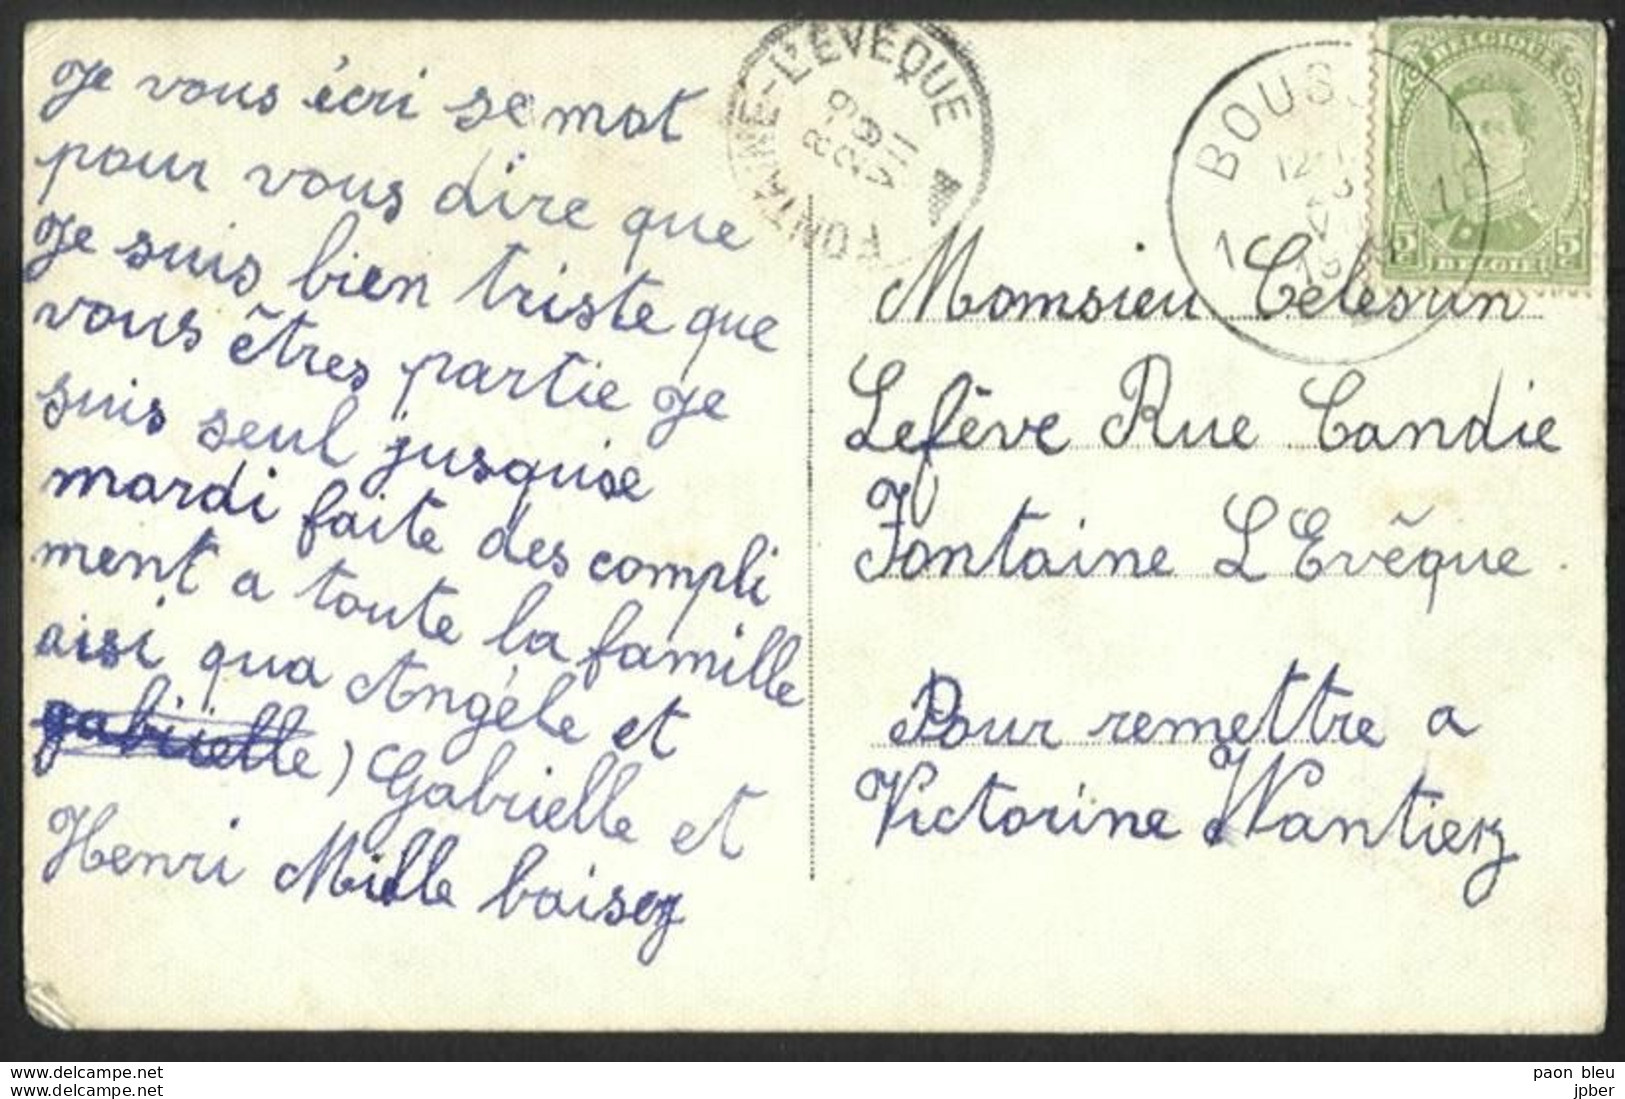 Je vous écri se mot
pour vous dire que
Je suis bien triste que
vous êtres partie je
suis seul jusquise
mardi faite des compli
ment a toute la famille
aisi qua Angèle et
gabriëlle) Gabrielle et
Henri Mille baisez
FONTAINE-L'EVEQUE
BOUS
BELGIQUE
5 5
BELGIË
Momsieu Celesun
Lefêve Rue Candie
Fontaine L'Evêque.
Pour remettre a
Victorine Wantiez
www.delcampe.net
www.delcampe.net
paon bleu
jpber